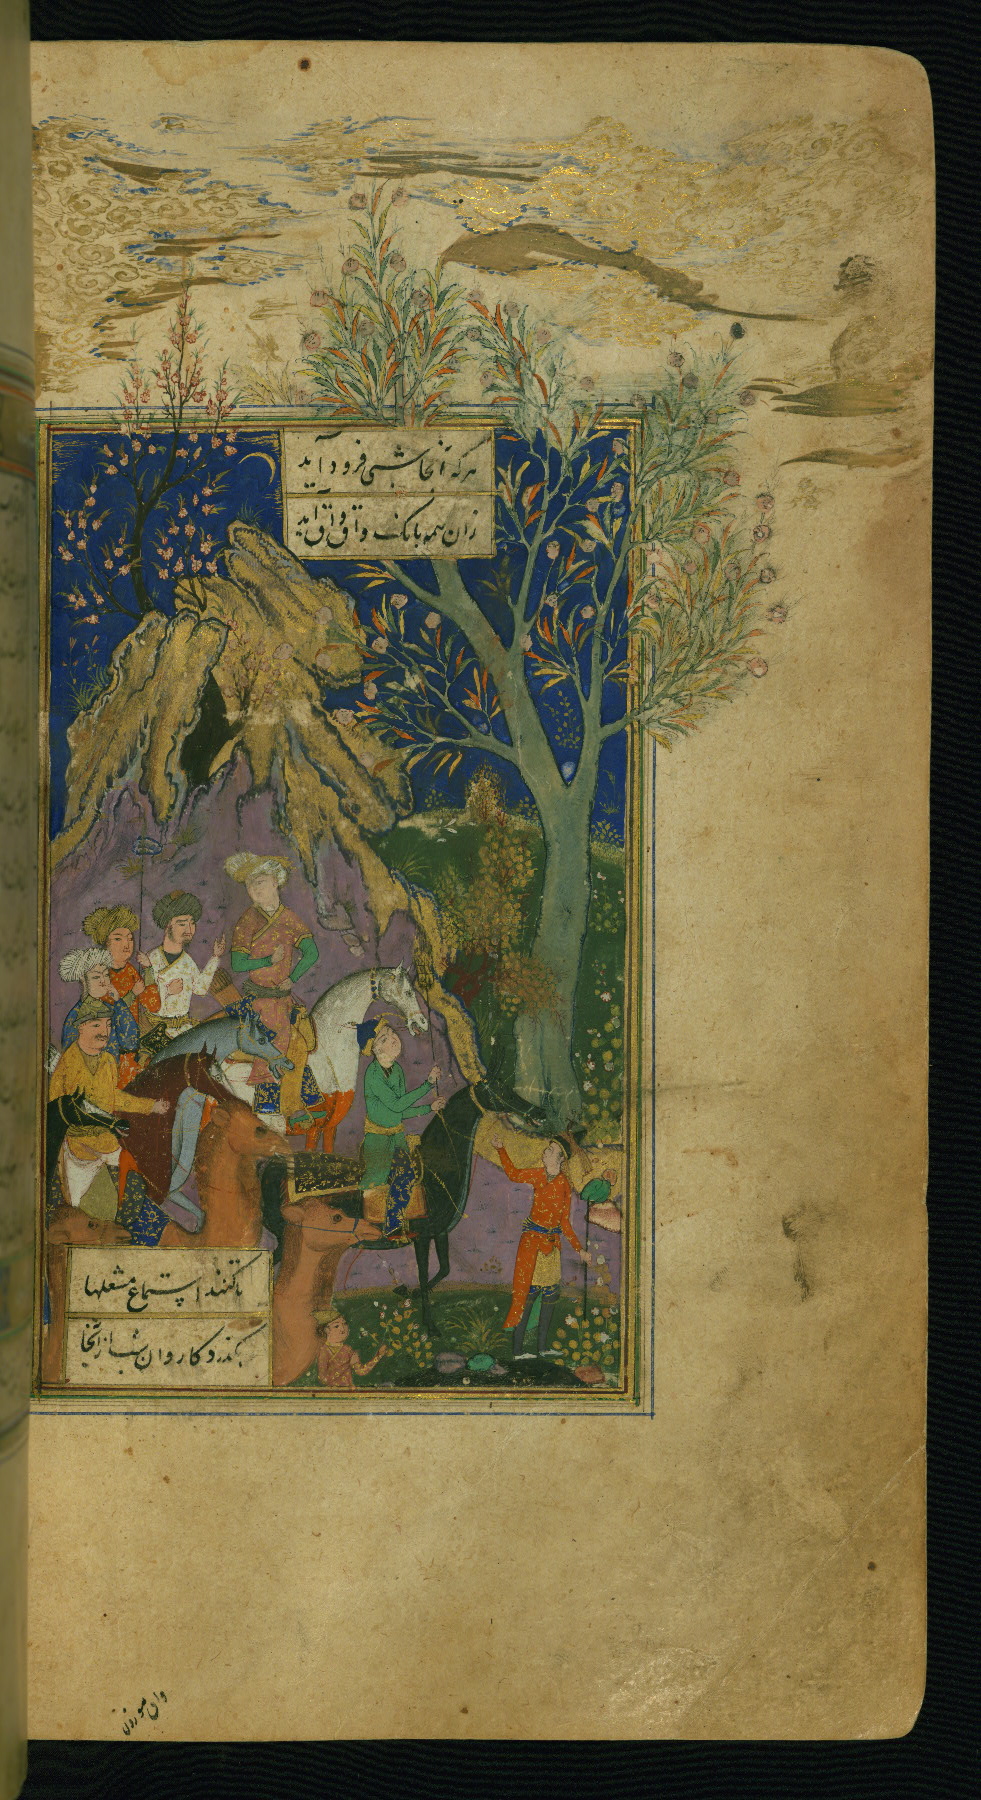 هرکه آنجا شبی فرود آید
زان همه بانک واق واق آید
تا کنند استماع مشعلها
بکذرد کاروان شب ازآنجا